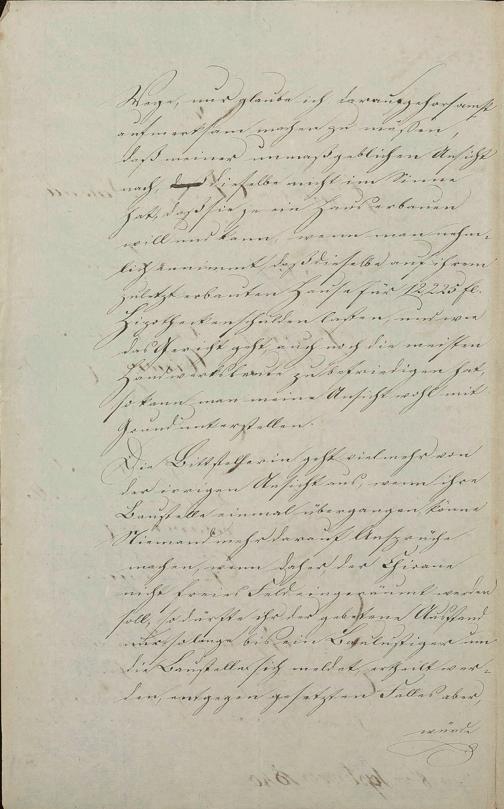 Wege, nur glaube ich darauf gehorsamst
aufmerksam machen zu müssen,
daß meiner unmaßgeblichen Ansicht
nach, dieselbe nicht im Sinne
hat, daß sie je ein Haus erbauen
will und kann, wenn man nehm-
lich annimmt, daß dieselbe auf ihrem
zuletzt erbauten Hause für 12,225 fl.
Hipothekenschulden lasten, und wie
das Gericht geht, auch noch die meisten
Handwerksleute zu befriedigen hat,
so kann man meine Ansicht wohl mit
Grund unterstellen.
Die Bittstellerin geht vielmehr von
der irrigen Ansicht aus, wenn ihre
Baustelle einmal übergangen könne
Niemand mehr darauf Ansprüche
machen, wenn daher der Chicane
nicht freies Feld eingeräumt werden
soll, so dürfte ihr der gebetene Ausstand
nur so lange bis ein Baulustiger um
die Baustelle sich meldet, ertheilt wer-
den, entgegen gesetzten Falles aber,
würde